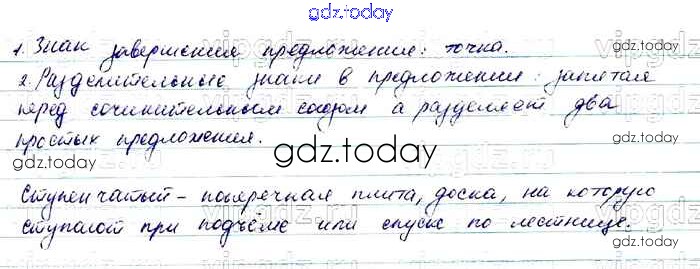 gdz.today
1. Знак завершения предложения: точка.
gdz.today
2. Разделительные знаки в предложении: запятая
перед сочинительным союзом а разделяет два
простых предложения.
gdz.today
Ступенчатый – поперечная плита, доска, на которую
ступают при подъёме или спуске по лестнице.
gdz.today